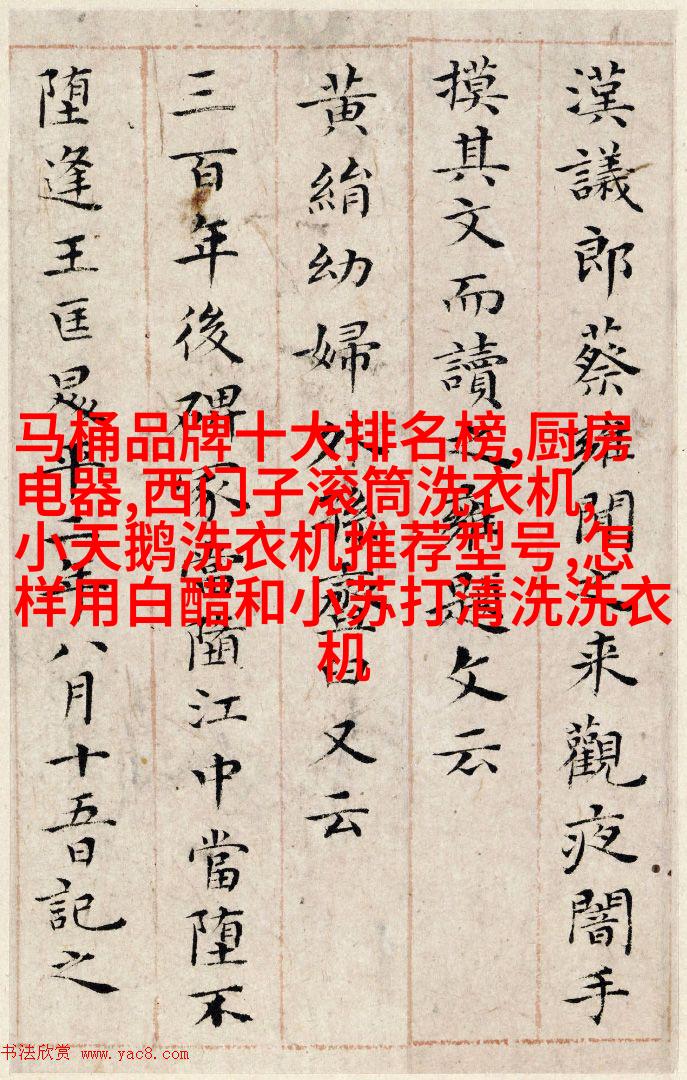 漢議郎蔡雍聞之來觀夜闇手
摸其文而讀之雍題文云
黃絹幼婦外孫䪢臼又云
三百年後碑冢當墮江中當墮不
墮逢王匡昇平二年八月十五日記之
马桶品牌十大排名榜,厨房
电器,西门子滚筒洗衣机,
小天鹅洗衣机推荐型号,怎
样用白醋和小苏打清洗洗衣
机
书法欣赏 www.yac8.com